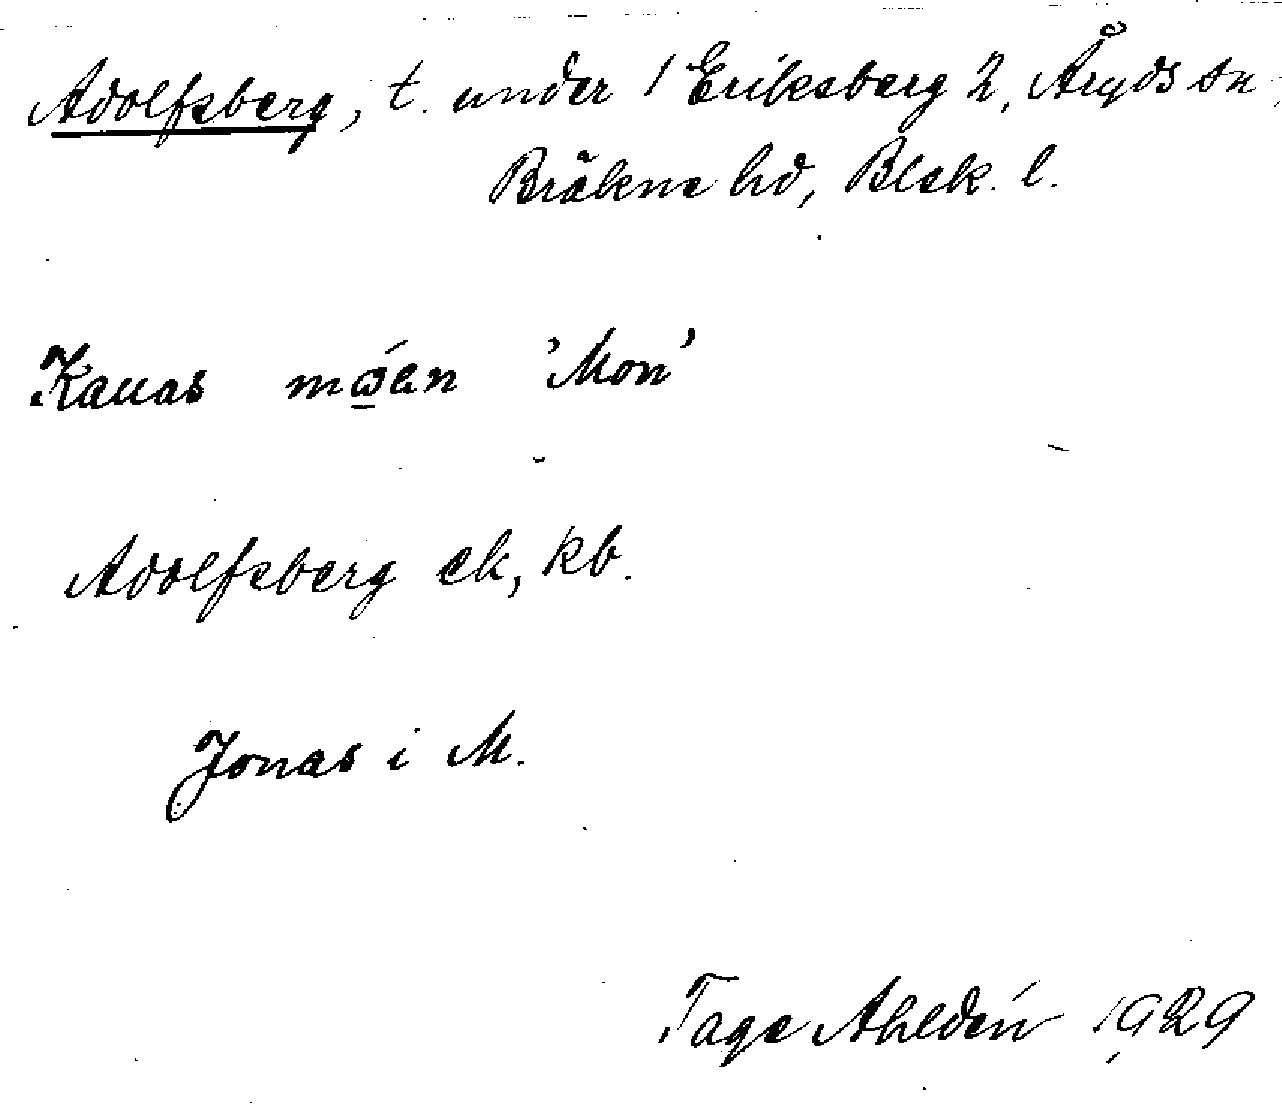 Adolfsberg, t. under 1 Eriksberg 2, Åryds sn,
Bräkne hd, Blek. l.
Kallas 'Mon'
Adolfsberg ek, kb.
Jonas i M.
Tage Ahldén 1929